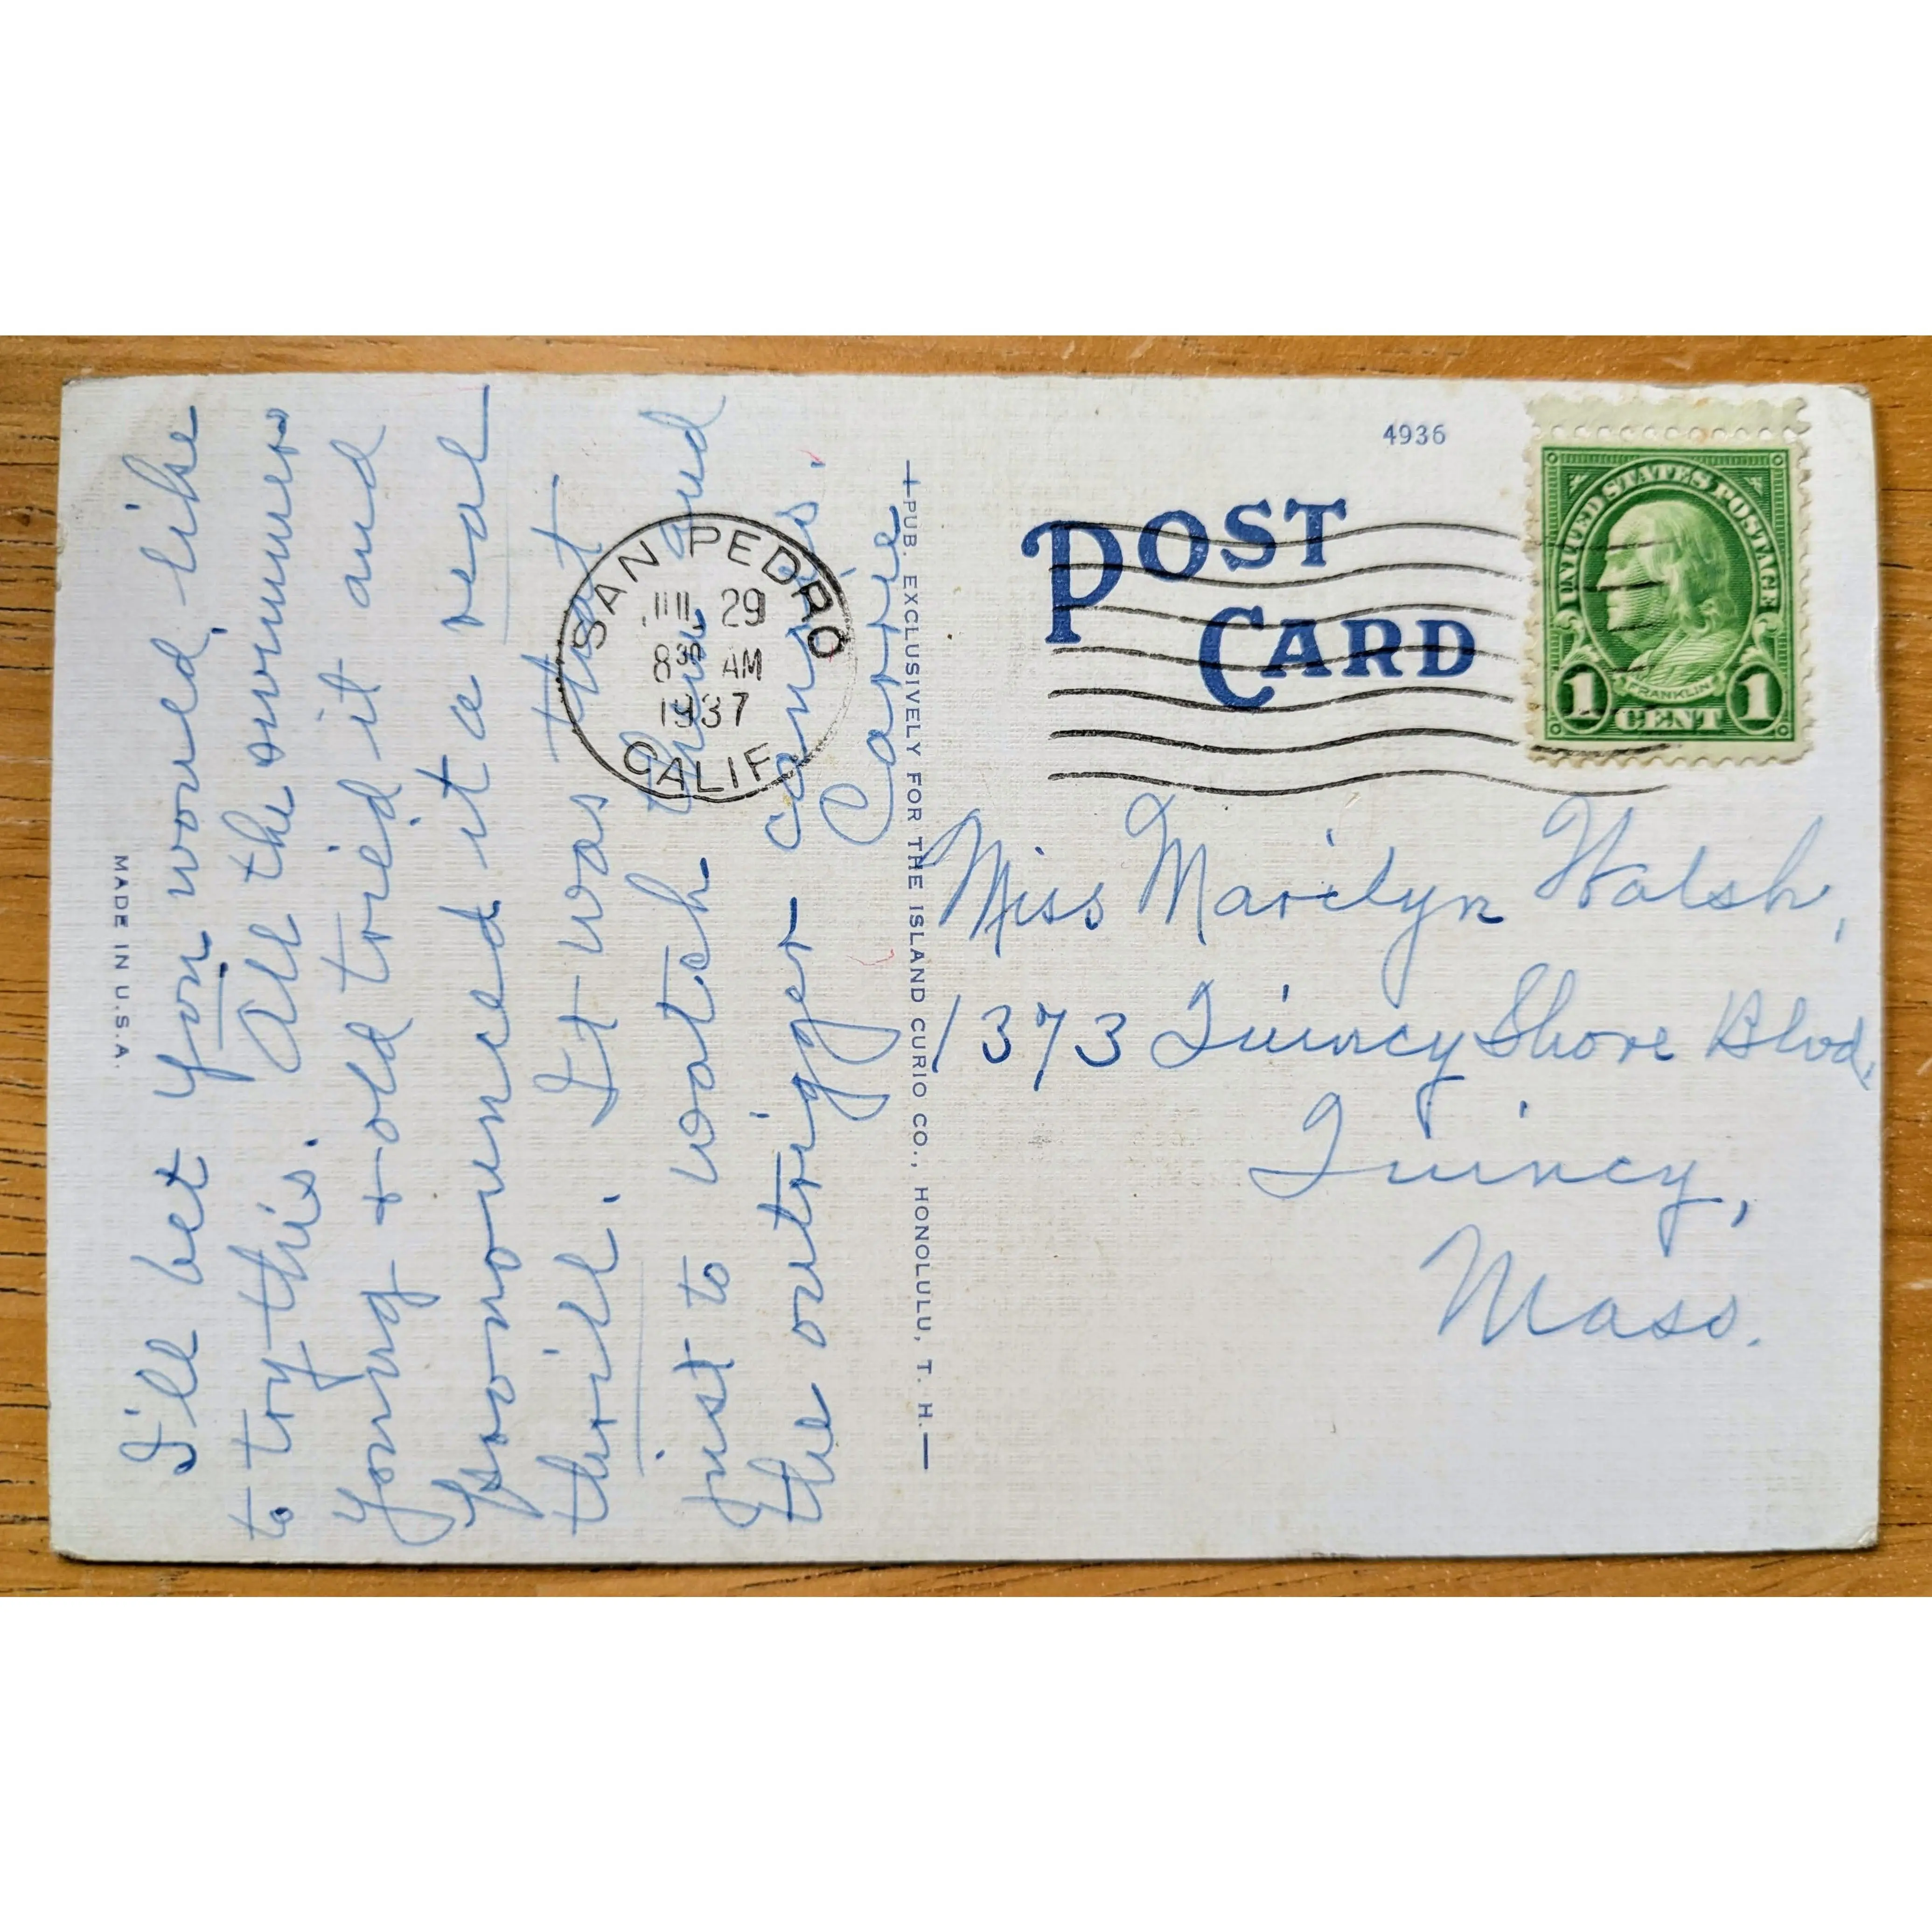 I'll bet you would like
to try this. All the swimmers
young & old tried it and
pronounced it a real
thrill. It was that
just to watch them and
the outrigger canoes.
Carrie
MADE IN U.S.A.
SAN PEDRO
JUL 29
8 30 AM
1937
CALIF.
PUB. EXCLUSIVELY FOR THE ISLAND CURIO CO., HONOLULU, T. H.
4936
POST
CARD
UNITED STATES POSTAGE
FRANKLIN
1 CENT 1
Miss Marilyn Walsh,
1373 Quincy Shore Blvd,
Quincy,
Mass.